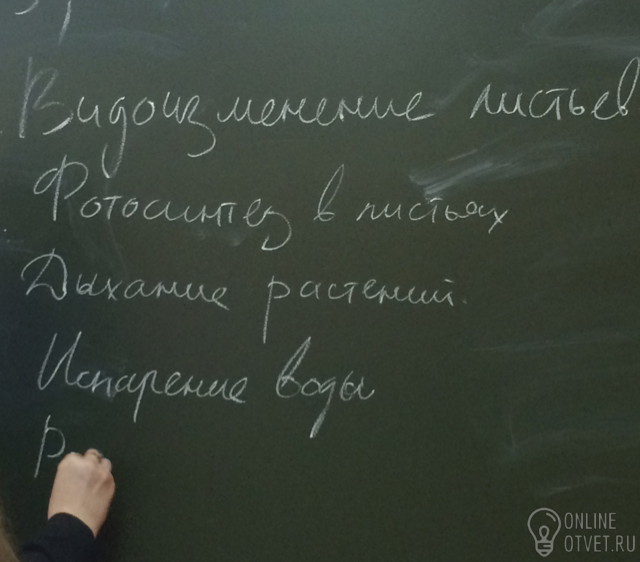 Видоизменение листьев
Фотосинтез в листьях
Дыхание растений.
Испарение воды
Р
ONLINE
OTVET.RU